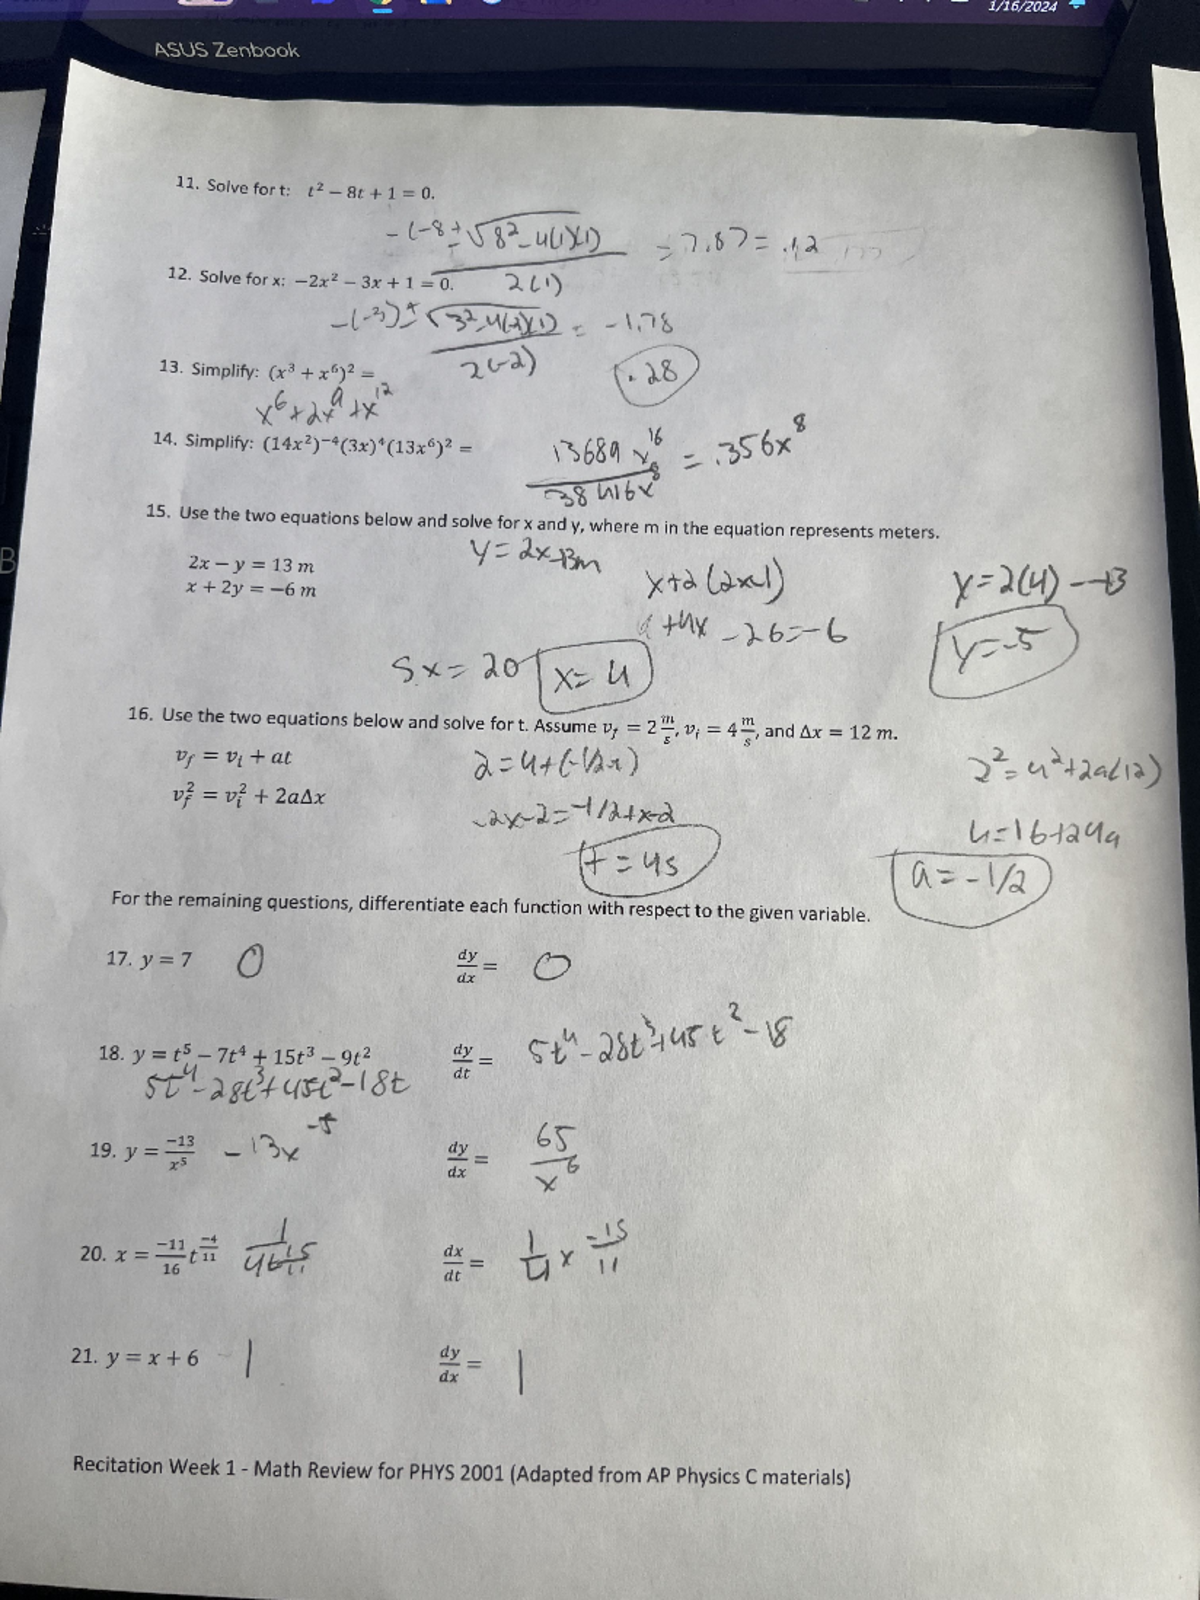 1/16/2024
ASUS Zenbook
11. Solve for t: t² − 8t + 1 = 0.
-(-8 ± √8² - 4(1)(1) = 7.87 = .12
2(1)
12. Solve for x: −2x² − 3x + 1 = 0.
-(-3) ± √3² - 4(-2)(1) = -1.78
2(-2)
.28
13. Simplify: (x³ + x⁶)² =
x⁶ + 2x⁹ + x¹²
14. Simplify: (14x²)⁻⁴(3x)⁴(13x⁶)² =
13689 x¹⁶ = .356x⁸
38416x⁸
15. Use the two equations below and solve for x and y, where m in the equation represents meters.
2x − y = 13 m
x + 2y = −6 m
y = 2x - 13m
x+2(2x-1)
+4x - 26 = -6
5x = 20
x = 4
y = 2(4) - 13
y = -5
16. Use the two equations below and solve for t. Assume v_f = 2 m/s, v_i = 4 m/s, and Δx = 12 m.
v_f = v_i + at
v_f² = v_i² + 2aΔx
2 = 4 + (-1/2x)
-2x-2 = -1/2+x-2
t = 4s
2² = 4² + 2a(12)
4 = 16 + 24a
a = -1/2
For the remaining questions, differentiate each function with respect to the given variable.
17. y = 7 0 dy/dx = 0
18. y = t⁵ − 7t⁴ + 15t³ − 9t² dy/dt = 5t⁴ - 28t³ + 45t² - 18
5t⁴ - 28t³ + 45t² - 18t
19. y = −13/x⁵ -13x⁻⁵ dy/dx = 65/x⁶
20. x = −11/16 t^(−4/11) 1/4t^(15/11) dx/dt = 1/4 x -15/11
21. y = x + 6 1 dy/dx = 1
Recitation Week 1 - Math Review for PHYS 2001 (Adapted from AP Physics C materials)